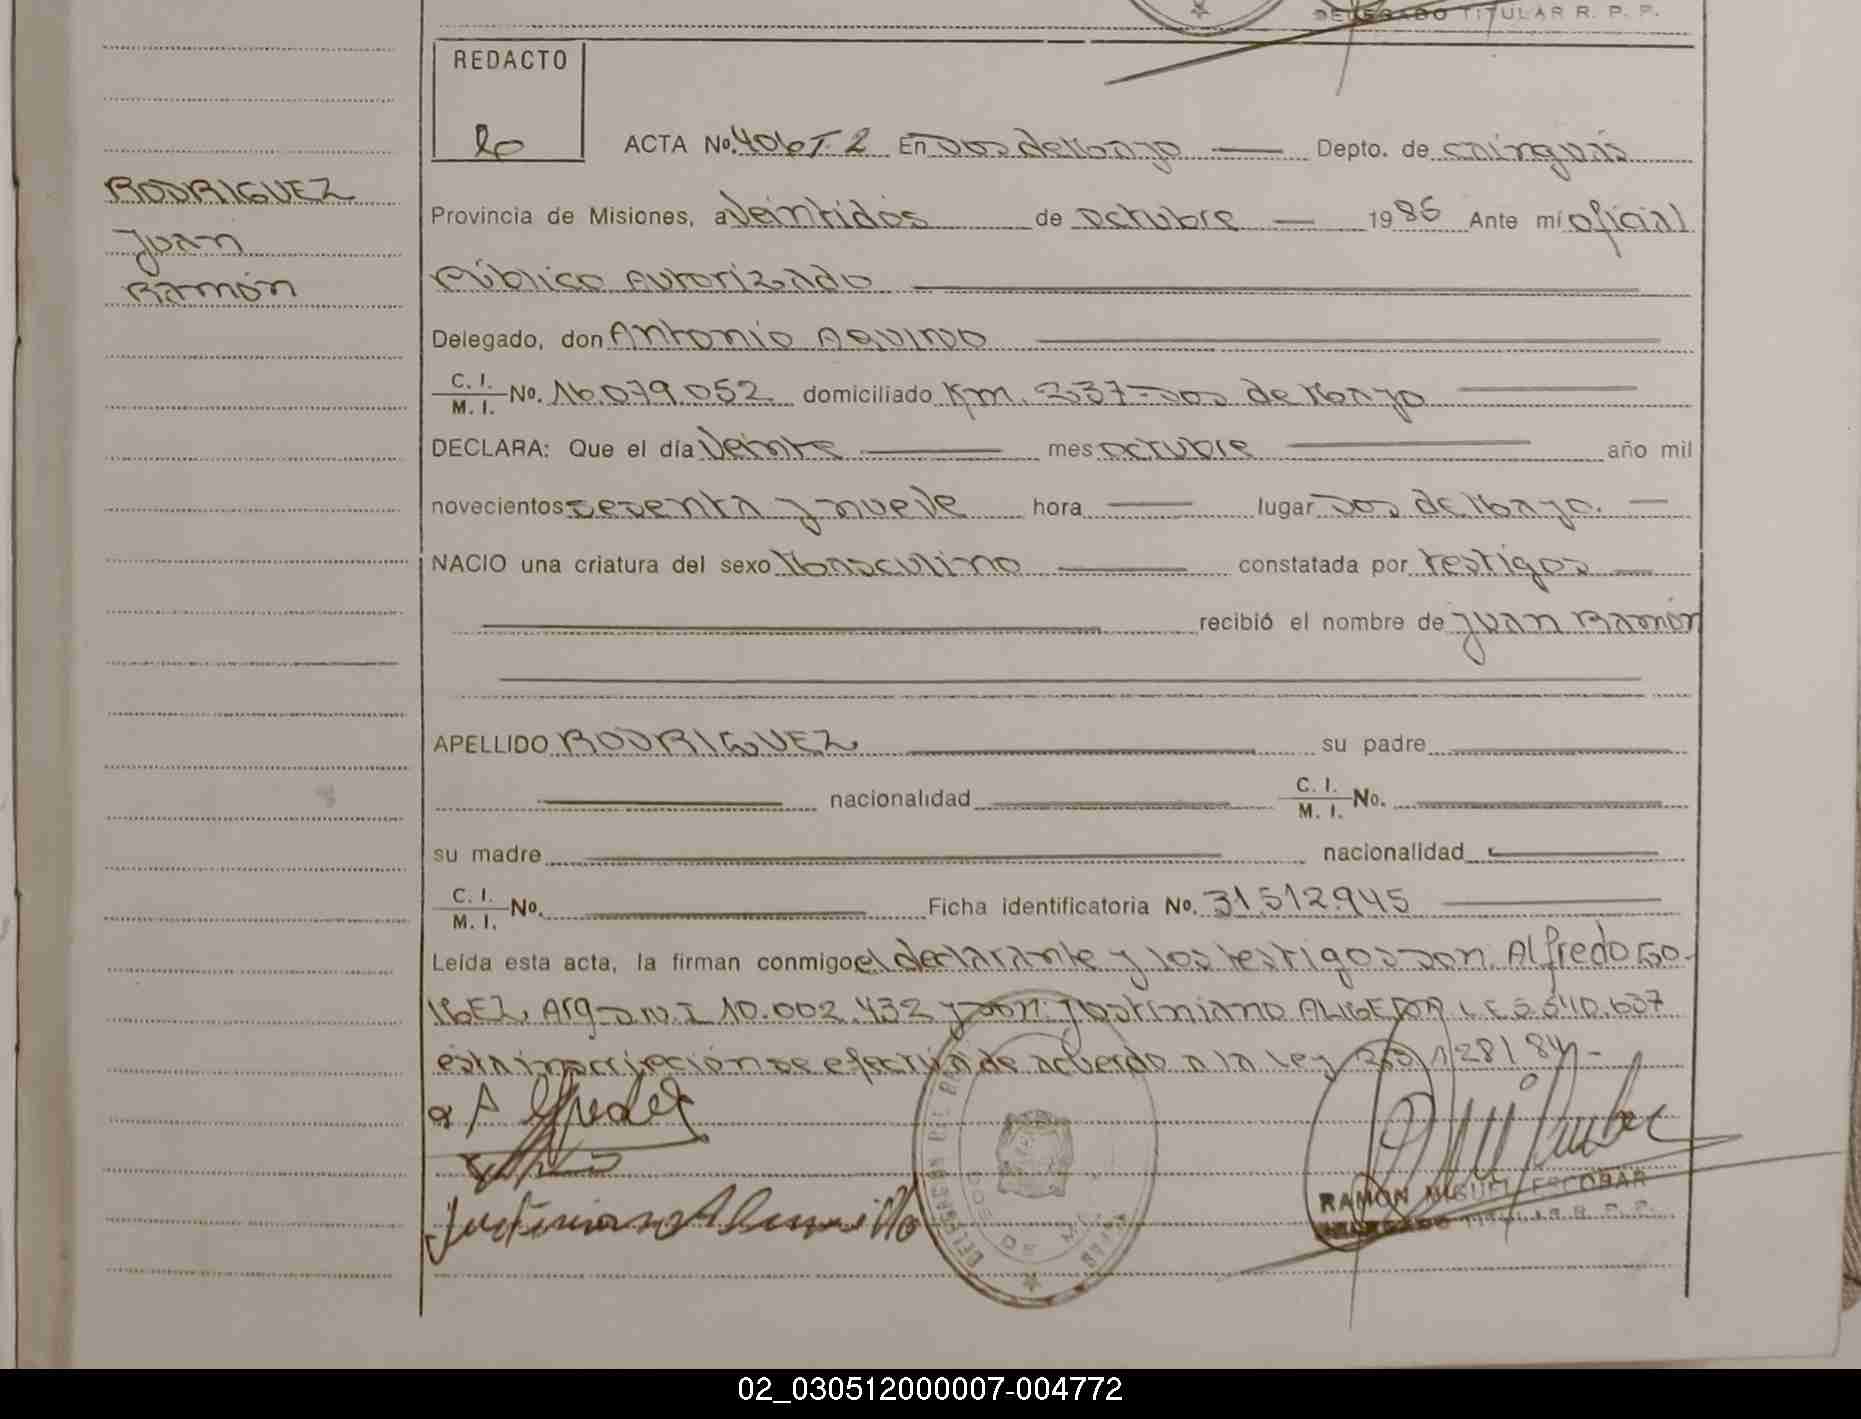 DELEGADO TITULAR R. P. P.
REDACTO
ACTA No. 406 T. 2 En Dos de Mayo Depto. de Cainguás
RODRIGUEZ
Juan
Ramón
Provincia de Misiones, a Veintidós de octubre 1986 Ante mí oficial
Público Autorizado
Delegado, don Antonio AQUINO
C. I.
M. I. No. 16.079.052 domiciliado Km. 237-Dos de Mayo
DECLARA: Que el día Veinte mes octubre año mil
novecientos setenta y nueve hora lugar Dos de Mayo.
NACIO una criatura del sexo Masculino constatada por testigos
recibió el nombre de Juan Ramón
APELLIDO RODRIGUEZ su padre
nacionalidad C. I.
M. I. No.
su madre nacionalidad
C. I.
M. I. No. Ficha identificatoria No. 31.512.945
Leída esta acta, la firman conmigo el declarante y los testigos don. Alfredo GO-
Arg. D.N.I 10.002.432 y don: Justiniano L.E 5.540.637
esta inscripción se efectúa de acuerdo a la Ley 23.128/84-
RAMON MIGUEL ESCOBAR
DELEGADO TITULAR R. P. P.
02_030512000007-004772